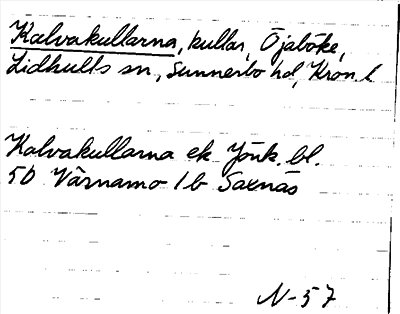 Kalvakullarna, kullar, Öjaböke,
Lidhults sn, Sunnerbo hd, Kron. l
Kalvakullarna ek. Jönk. bl.
5D Värnamo 1b Saxnäs
N-57